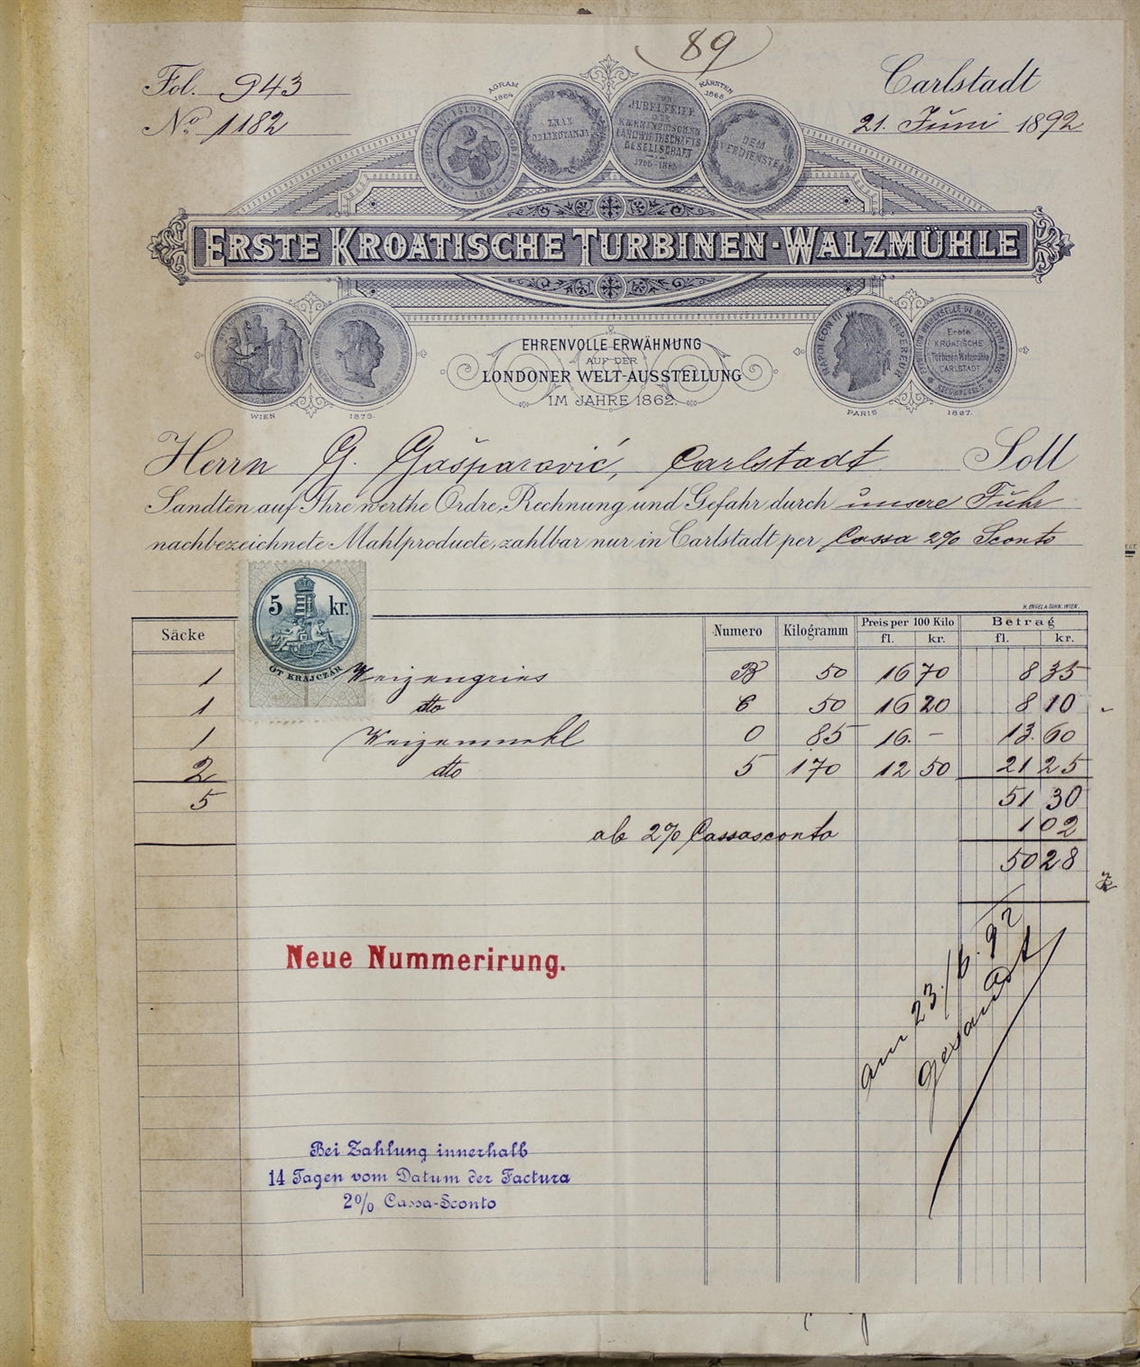 89
Fol. 943
No. 1182
Carlstadt
21. Juni 1892
AGRAM 1864
KÄRNTEN 1865
ZNAK ODLIKOVANJA
ZUR JUBELFEIER DER KÄRNTNERISCHEN LANDWIRTHSCHAFTS GESELLSCHAFT 1765-1865
DEM VERDIENSTE
ERSTE KROATISCHE TURBINEN-WALZMÜHLE
EHRENVOLLE ERWÄHNUNG
AUF DER
LONDONER WELT-AUSSTELLUNG
IM JAHRE 1862.
NAPOLEON III EMPEREUR
Erste KROATISCHE Turbinen-Walzmühle CARLSTADT
WIEN 1873.
PARIS 1867.
Herrn G. Gašparović, Carlstadt Soll
Sandten auf Ihre werthe Ordre, Rechnung und Gefahr durch unsere Fuhr
nachbezeichnete Mahlproducte, zahlbar nur in Carlstadt per Cassa 2% Sconto
5 kr.
ÖT KRAJCZÁR
H. ENGEL & SOHN, WIEN.
Säcke Numero Kilogramm Preis per 100 Kilo Betrag
fl. kr. fl. kr.
1 Weizengries B 50 16 70 8 35
1 dto C 50 16 20 8 10
1 Weizenmehl 0 85 16. – 13. 60
2 dto 5 170 12 50 21 25
5 51 30
ab 2% Cassasconto 1 02
50 28
am 23./6. 92
gesandt
Neue Nummerirung.
Bei Zahlung innerhalb
14 Tagen vom Datum der Factura
2% Cassa-Sconto